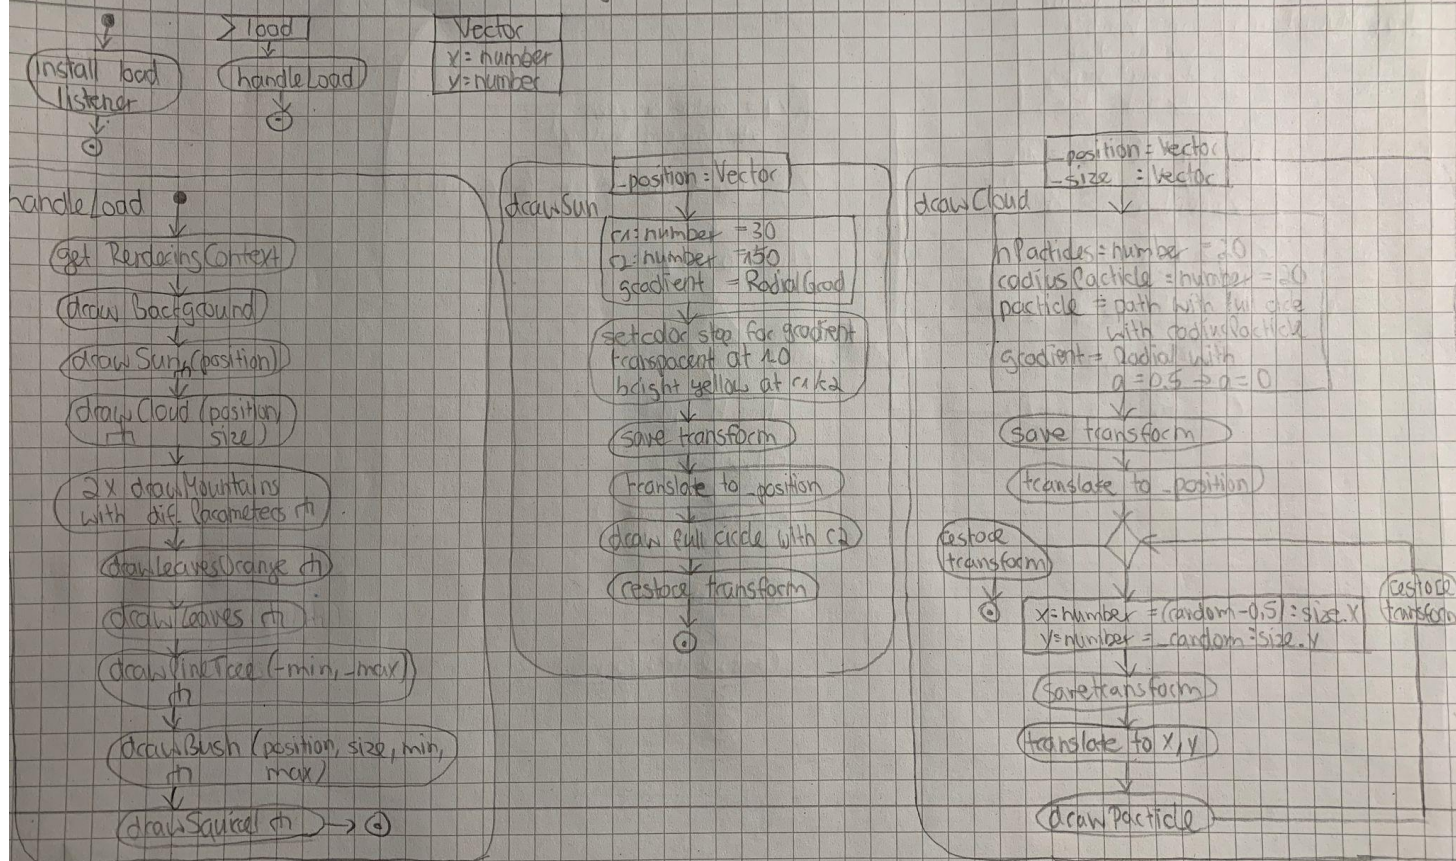 install load
listener
load
handleLoad
Vector
x = number
y = number
handleLoad
get RenderingContext
draw Background
drawSun (position)
drawCloud (position
size)
2x drawMountains
with dif. Parameters
drawLeavesOrange
drawLeaves
drawPineTree (-min, -max)
drawBush (position, size, min,
max)
drawSquirel
_position = Vector
drawSun
r1: number = 30
r2: number = 150
gradient = RadialGrad
set color stop for gradient
transparent at 10
bright yellow at r1 & 2
save transform
translate to _position
draw full circle with r2
restore transform
_position = Vector
_size : Vector
drawCloud
nParticles = number = 20
radiusParticle = number = 20
particle = path with full circle
with radiusParticle
gradient = Radial with
a = 0.5 → a = 0
save transform
translate to _position
restore
transform
restore
transform
x = number = (random - 0,5) * size.x
y = number = _random * size.y
save transform
translate to x, y
drawParticle